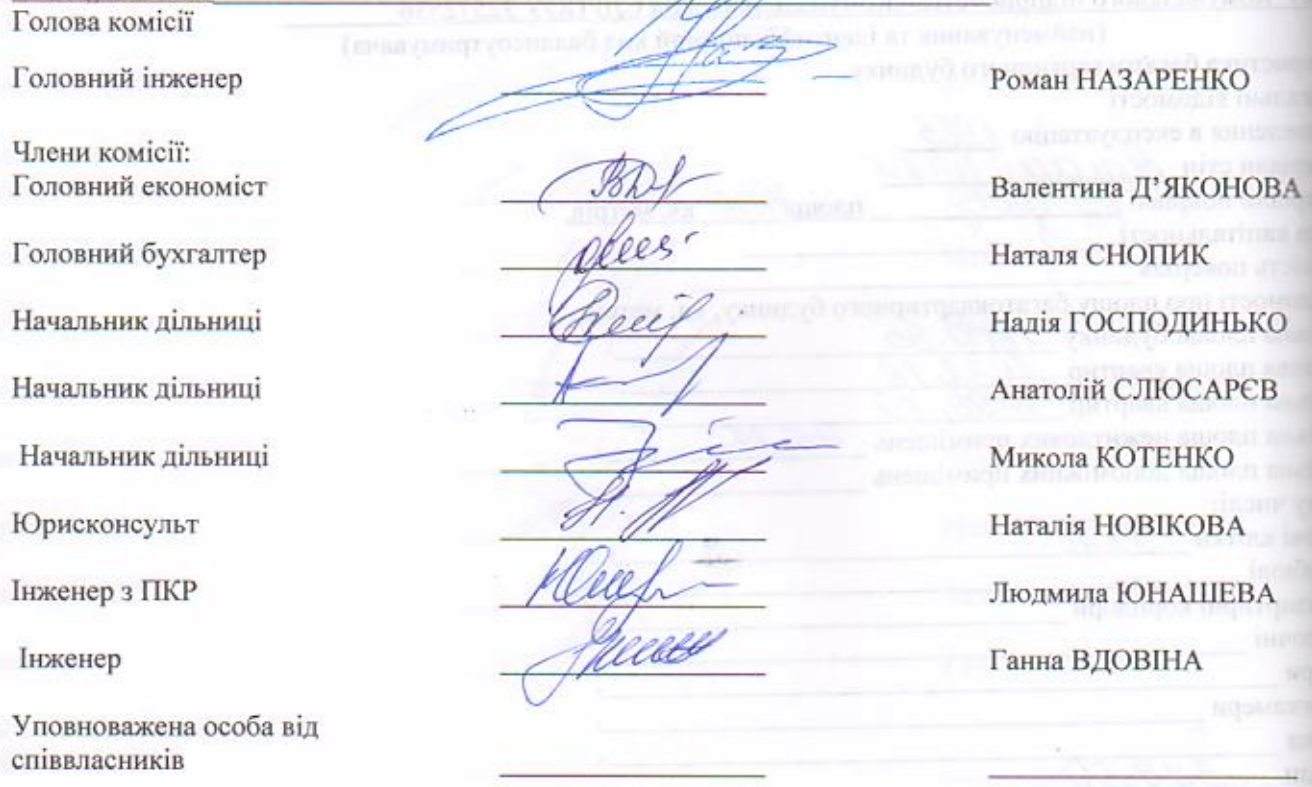 Голова комісії
Головний інженер Роман НАЗАРЕНКО
Члени комісії:
Головний економіст Валентина Д’ЯКОНОВА
Головний бухгалтер Наталя СНОПИК
Начальник дільниці Надія ГОСПОДИНЬКО
Начальник дільниці Анатолій СЛЮСАРЄВ
Начальник дільниці Микола КОТЕНКО
Юрисконсульт Наталія НОВІКОВА
Інженер з ПКР Людмила ЮНАШЕВА
Інженер Ганна ВДОВІНА
Уповноважена особа від
співвласників